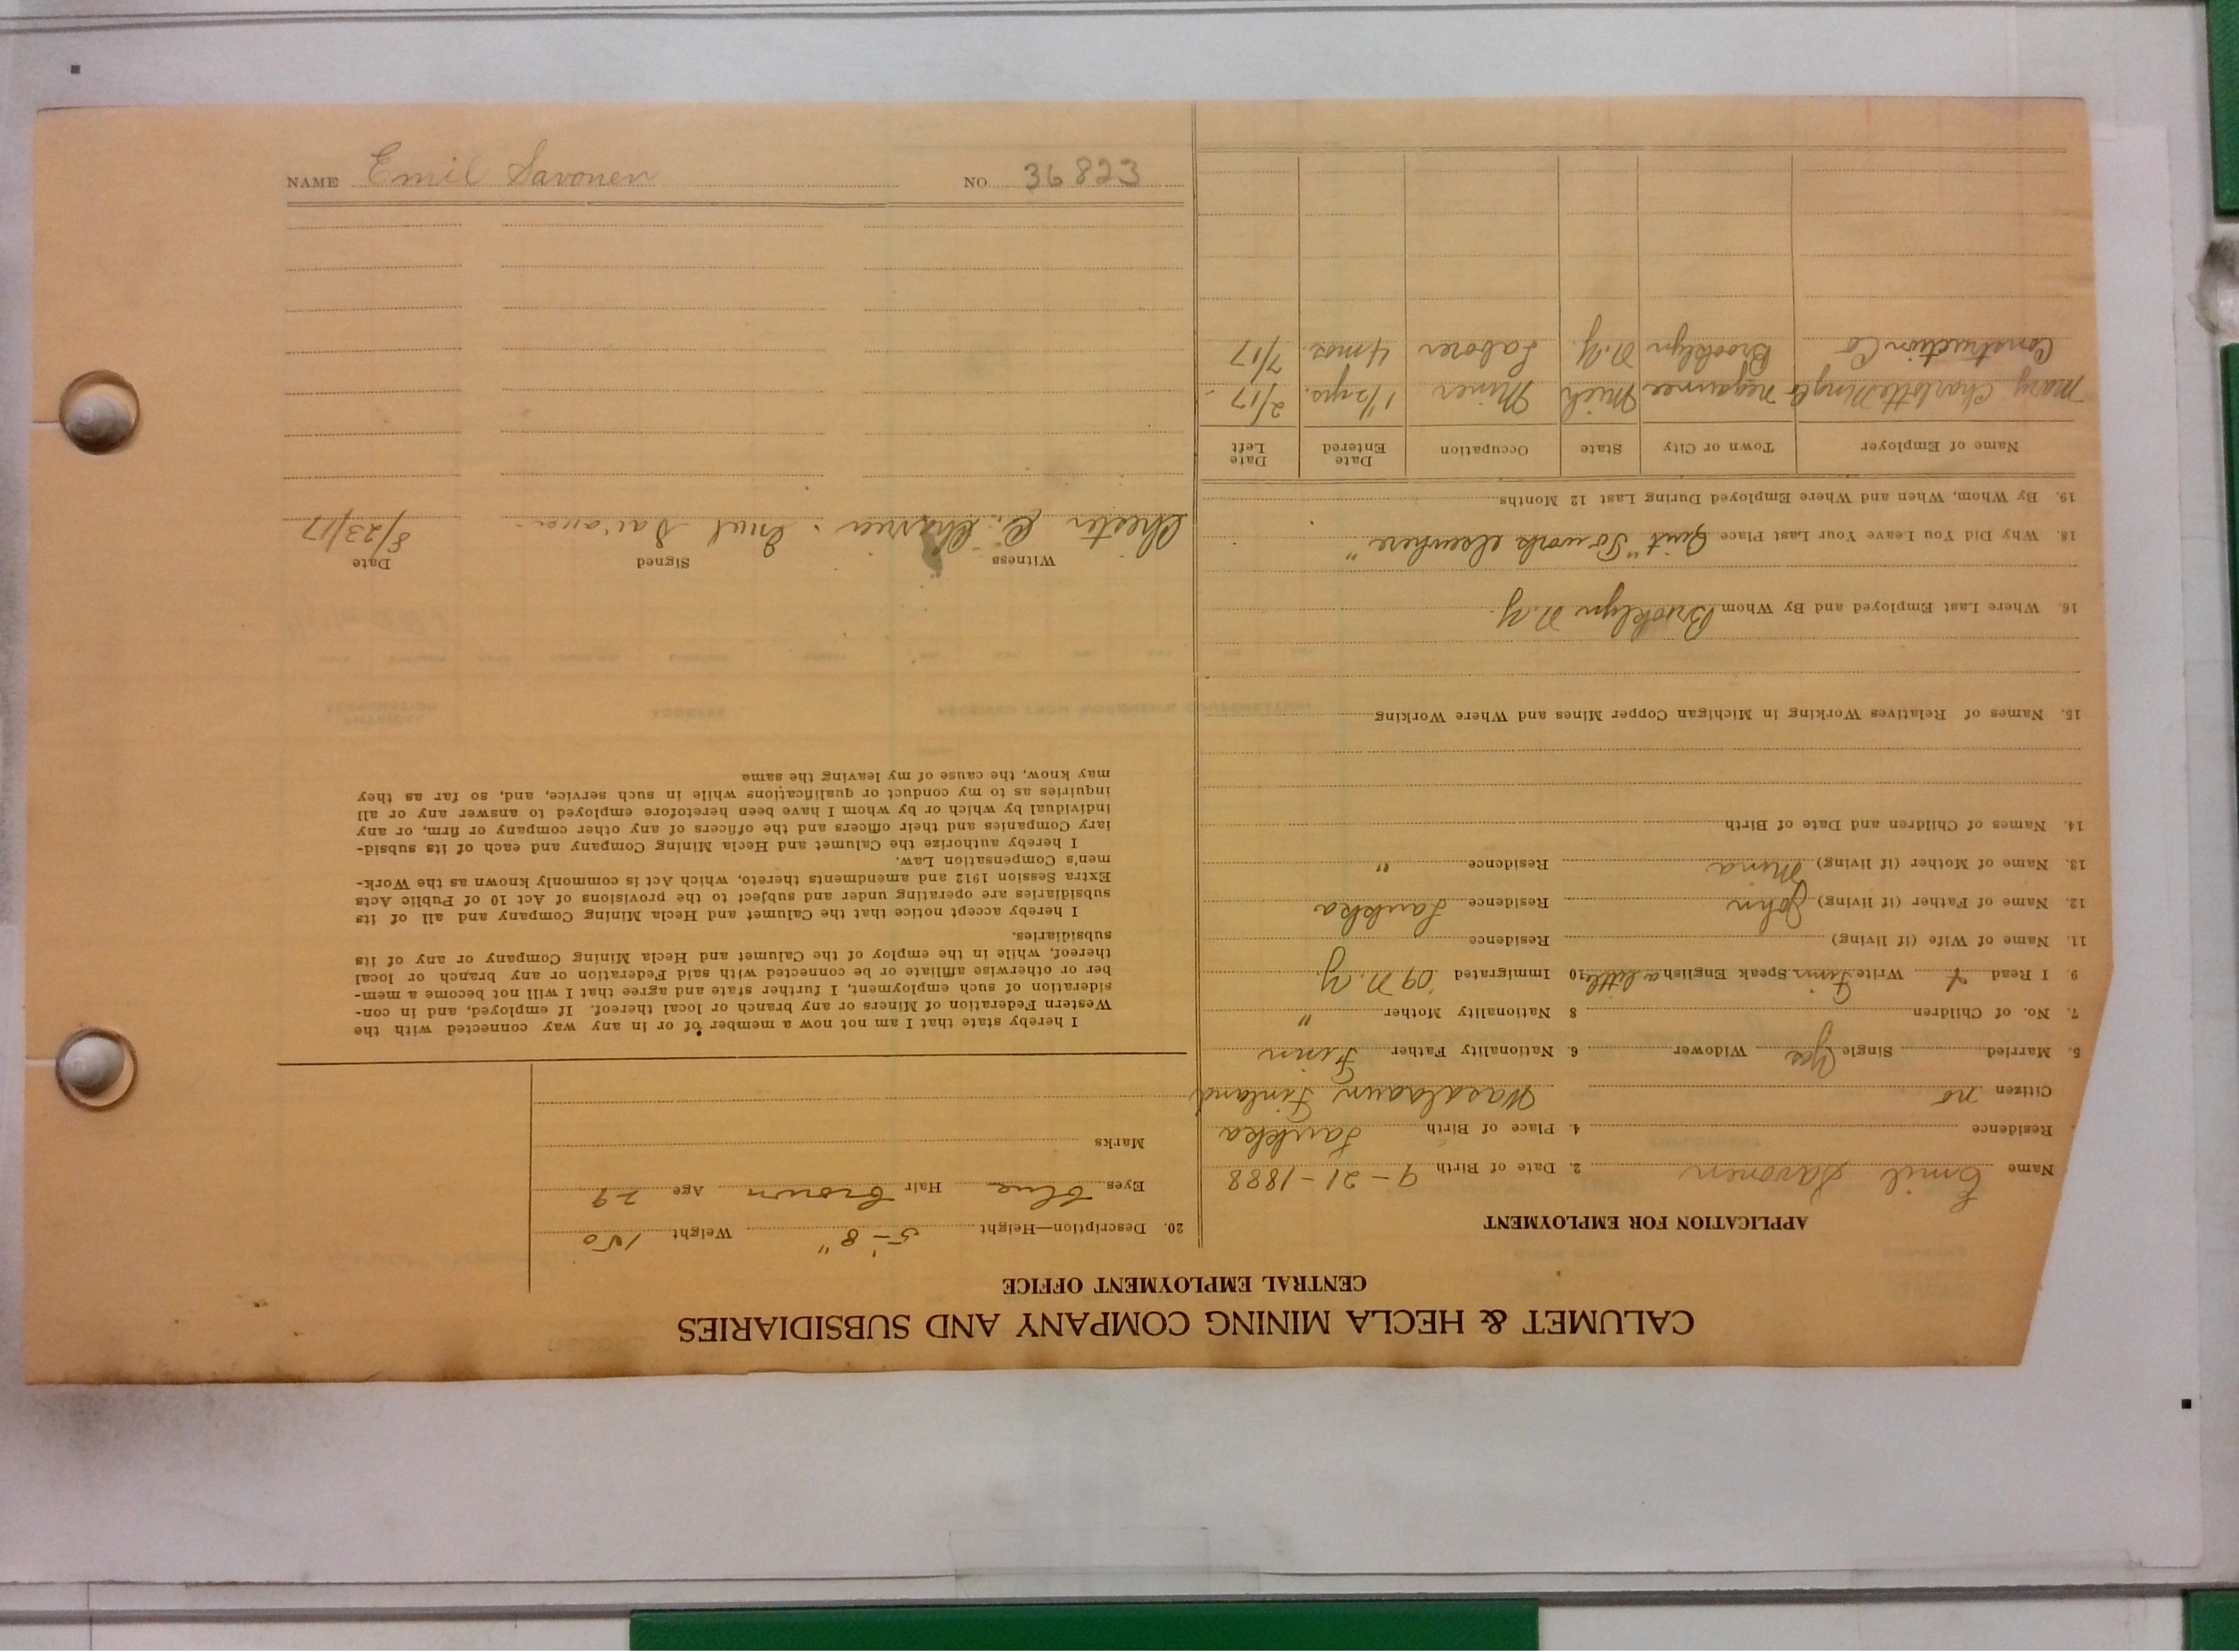 CALUMET & HECLA MINING COMPANY AND SUBSIDIARIES
CENTRAL EMPLOYMENT OFFICE
APPLICATION FOR EMPLOYMENT
Name Emil Savonen 2. Date of Birth 9-21-1888
Residence 4. Place of Birth Laukka
Citizen no Wasalaani Finland
5. Married Single Yes Widower 6. Nationality Father Finn
7. No. of Children 8 Nationality Mother "
9. I Read & Write Finn Speak English a little 10 Immigrated '09 N.Y.
11. Name of Wife (if living) Residence
12. Name of Father (if living) John Residence Laukka
13. Name of Mother (if living) Mina Residence "
14. Names of Children and Date of Birth
15. Names of Relatives Working in Michigan Copper Mines and Where Working
16. Where Last Employed and By Whom Brooklyn N.Y.
18. Why Did You Leave Your Last Place Quit "To work elsewhere"
19. By Whom, When and Where Employed During Last 12 Months
Name of Employer Town or City State Occupation Date Entered Date Left
Mary Charlotte Mng Co Negaunee Mich Miner 1 1/2 yrs. 2/17
Construction Co Brooklyn N.Y. Laborer 4 mos. 7/17
20. Description—Height 5'-8" Weight 150
Eyes blue Hair brown Age 29
Marks
I hereby state that I am not now a member of or in any way connected with the
Western Federation of Miners or any branch or local thereof. If employed, and in con-
sideration of such employment, I further state and agree that I will not become a mem-
ber or otherwise affiliate or be connected with said Federation or any branch or local
thereof, while in the employ of the Calumet and Hecla Mining Company or any of its
subsidiaries.
I hereby accept notice that the Calumet and Hecla Mining Company and all of its
subsidiaries are operating under and subject to the provisions of Act 10 of Public Acts
Extra Session 1912 and amendments thereto, which Act is commonly known as the Work-
men's Compensation Law.
I hereby authorize the Calumet and Hecla Mining Company and each of its subsid-
iary Companies and their officers and the officers of any other company or firm, or any
individual by which or by whom I have been heretofore employed to answer any or all
inquiries as to my conduct or qualifications while in such service, and, so far as they
may know, the cause of my leaving the same
Witness Signed Date
Chester C. Emil Savonen 8/23/17
NAME Emil Savonen NO. 36823